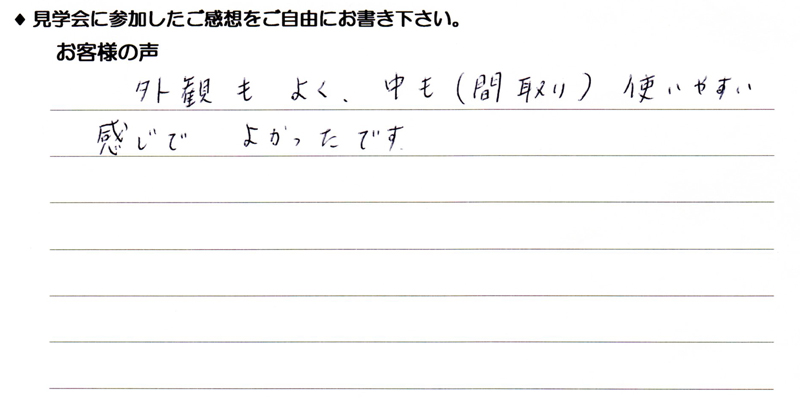 ◆ 見学会に参加したご感想をご自由にお書き下さい。
お客様の声
外観も よく、中も(間取り) 使いやすい
感じで よかったです.